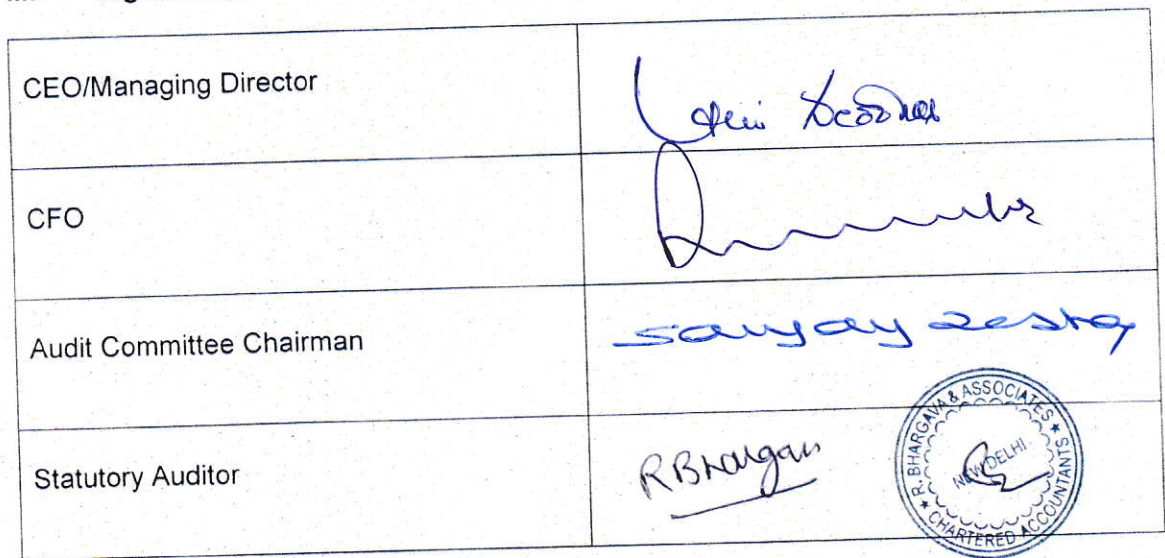 CEO/Managing Director
CFO
Audit Committee Chairman
Sanjay
Statutory Auditor
R Bhargava
R. BHARGAVA & ASSOCIATES
NEW DELHI
★ CHARTERED ACCOUNTANTS ★